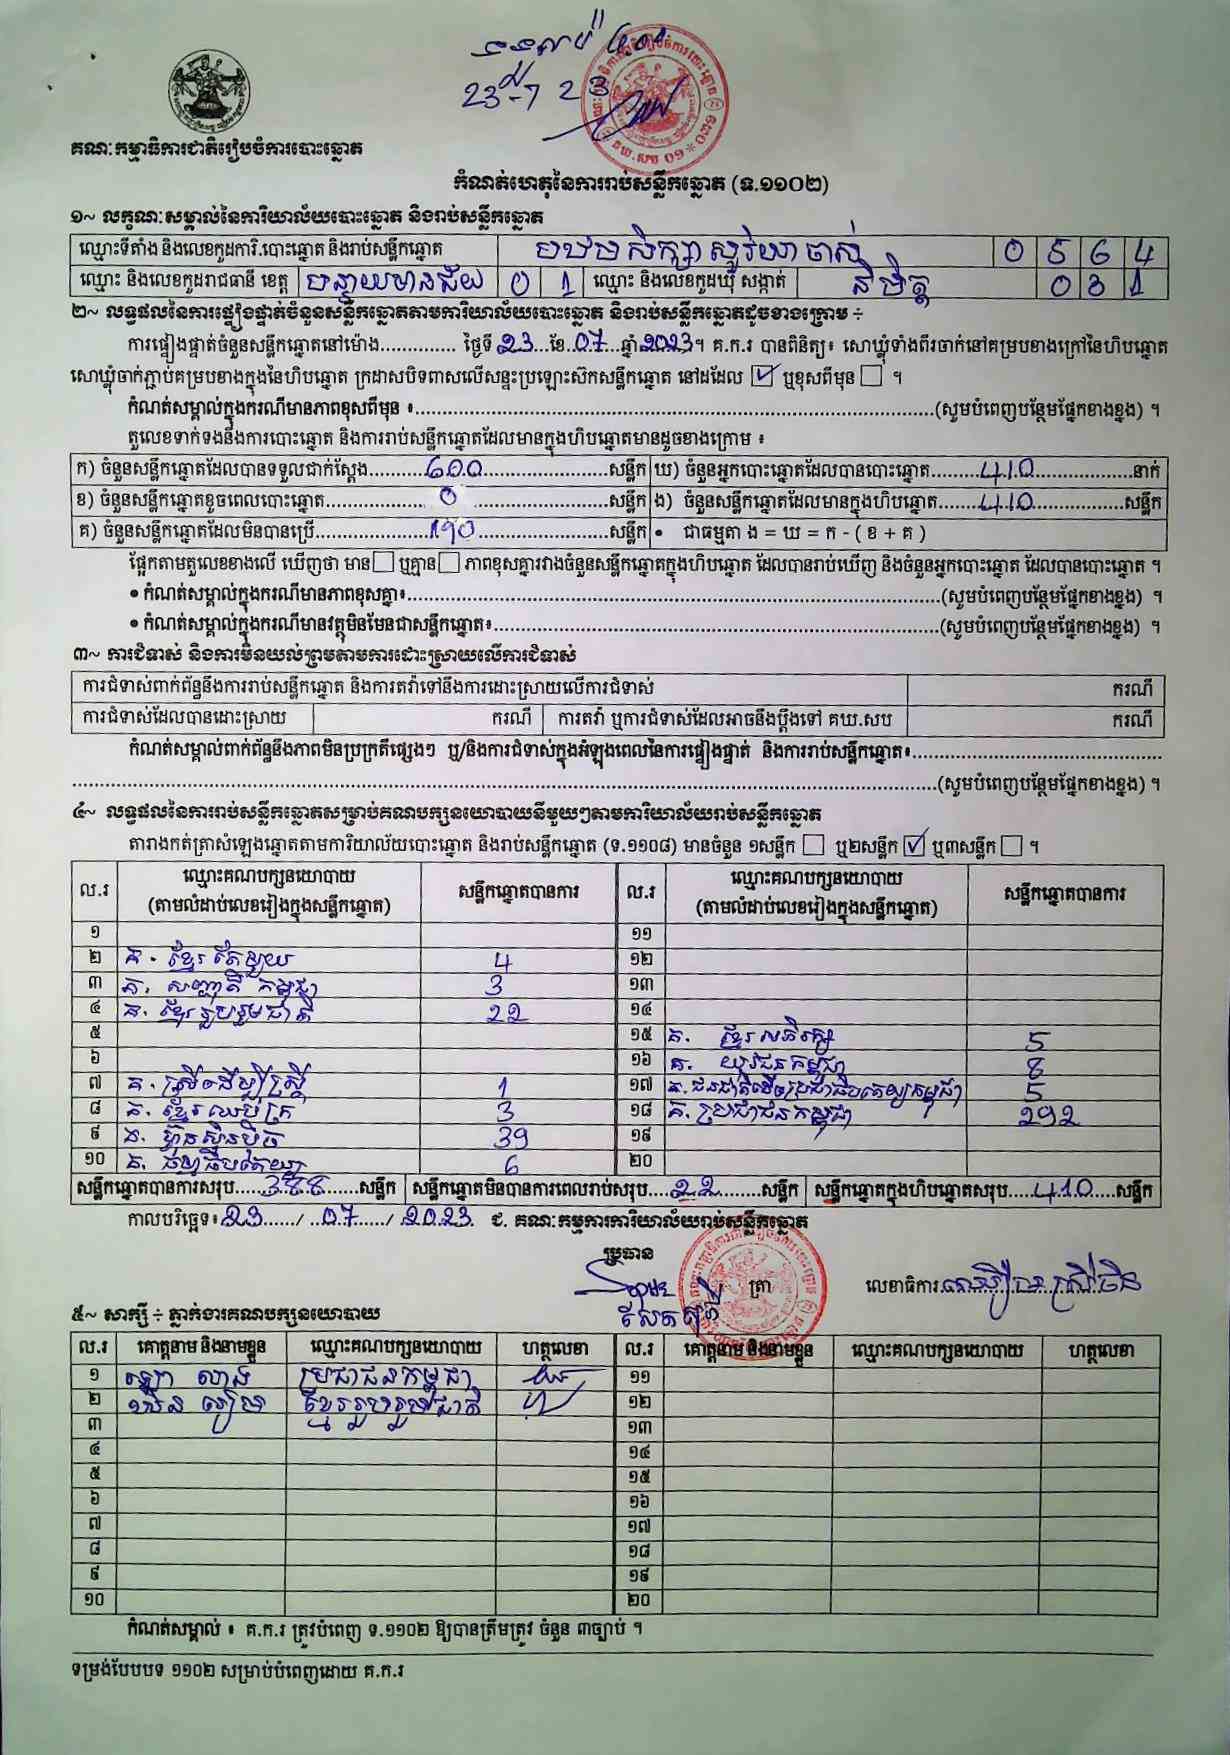 គណៈកម្មាធិការជាតិរៀបចំការបោះឆ្នោត
កំណត់ហេតុនៃការរាប់សន្លឹកឆ្នោត (ទ.១១០២)
១~ លក្ខណៈសម្គាល់នៃការិយាល័យបោះឆ្នោត និងរាប់សន្លឹកឆ្នោត
ឈ្មោះទីតាំង និងលេខកូដការិ.បោះឆ្នោត និងរាប់សន្លឹកឆ្នោត បឋមសិក្សាសូរិយា ចាស់ 0 5 6 4
ឈ្មោះ និងលេខកូដរាជធានី ខេត្ត បន្ទាយមានជ័យ 0 1 ឈ្មោះ និងលេខកូដឃុំ សង្កាត់ និមិត្ត 0 3 1
២~ លទ្ធផលនៃការផ្ទៀងផ្ទាត់ចំនួនសន្លឹកឆ្នោតតាមការិយាល័យបោះឆ្នោត និងរាប់សន្លឹកឆ្នោតដូចខាងក្រោម ÷
ការផ្ទៀងផ្ទាត់ចំនួនសន្លឹកឆ្នោតនៅម៉ោង.............. ថ្ងៃទី 23 ខែ 07 ឆ្នាំ 2023 ។ គ.ក.រ បានពិនិត្យ៖ សោឃ្លុំទាំងពីរចាក់នៅគម្របខាងក្រៅនៃហិបឆ្នោត
សោឃ្លុំចាក់ភ្ជាប់គម្របខាងក្នុងនៃហិបឆ្នោត ក្រដាសបិទពាសលើសន្ទះប្រឡោះស៊កសន្លឹកឆ្នោត នៅដដែល ☑ ឬខុសពីមុន ☐ ។
កំណត់សម្គាល់ក្នុងករណីមានភាពខុសពីមុន ៖..............(សូមបំពេញបន្ថែមផ្នែកខាងខ្នង) ។
តួលេខទាក់ទងនឹងការបោះឆ្នោត និងការរាប់សន្លឹកឆ្នោតដែលមានក្នុងហិបឆ្នោតមានដូចខាងក្រោម ៖
ក) ចំនួនសន្លឹកឆ្នោតដែលបានទទួលជាក់ស្តែង 600 សន្លឹក ឃ) ចំនួនអ្នកបោះឆ្នោតដែលបានបោះឆ្នោត 410 នាក់
ខ) ចំនួនសន្លឹកឆ្នោតខូចពេលបោះឆ្នោត 0 សន្លឹក ង) ចំនួនសន្លឹកឆ្នោតដែលមានក្នុងហិបឆ្នោត 410 សន្លឹក
គ) ចំនួនសន្លឹកឆ្នោតដែលមិនបានប្រើ 190 សន្លឹក • ជាធម្មតា ង = ឃ = ក - ( ខ + គ )
ផ្អែកតាមតួលេខខាងលើ ឃើញថា មាន ☐ ឬគ្មាន ☐ ភាពខុសគ្នារវាងចំនួនសន្លឹកឆ្នោតក្នុងហិបឆ្នោត ដែលបានរាប់ឃើញ និងចំនួនអ្នកបោះឆ្នោត ដែលបានបោះឆ្នោត ។
• កំណត់សម្គាល់ក្នុងករណីមានភាពខុសគ្នា៖..............(សូមបំពេញបន្ថែមផ្នែកខាងខ្នង) ។
• កំណត់សម្គាល់ក្នុងករណីមានវត្ថុមិនមែនជាសន្លឹកឆ្នោត៖..............(សូមបំពេញបន្ថែមផ្នែកខាងខ្នង) ។
៣~ ការជំទាស់ និងការមិនយល់ព្រមតាមការដោះស្រាយលើការជំទាស់
ការជំទាស់ពាក់ព័ន្ធនឹងការរាប់សន្លឹកឆ្នោត និងការតវ៉ាទៅនឹងការដោះស្រាយលើការជំទាស់ ករណី
ការជំទាស់ដែលបានដោះស្រាយ ករណី ការតវ៉ា ឬការជំទាស់ដែលអាចនឹងប្តឹងទៅ គឃ.សប ករណី
កំណត់សម្គាល់ពាក់ព័ន្ធនឹងភាពមិនប្រក្រតីផ្សេងៗ ឬ/និងការជំទាស់ក្នុងអំឡុងពេលនៃការផ្ទៀងផ្ទាត់ និងការរាប់សន្លឹកឆ្នោត៖..............
..............(សូមបំពេញបន្ថែមផ្នែកខាងខ្នង) ។
៤~ លទ្ធផលនៃការរាប់សន្លឹកឆ្នោតសម្រាប់គណបក្សនយោបាយនីមួយៗតាមការិយាល័យរាប់សន្លឹកឆ្នោត
តារាងកត់ត្រាសំឡេងឆ្នោតតាមការិយាល័យបោះឆ្នោត និងរាប់សន្លឹកឆ្នោត (ទ.១១០៨) មានចំនួន ១សន្លឹក ☐ ឬ២សន្លឹក ☑ ឬ៣សន្លឹក ☐ ។
ល.រ ឈ្មោះគណបក្សនយោបាយ (តាមលំដាប់លេខរៀងក្នុងសន្លឹកឆ្នោត) សន្លឹកឆ្នោតបានការ ល.រ ឈ្មោះគណបក្សនយោបាយ (តាមលំដាប់លេខរៀងក្នុងសន្លឹកឆ្នោត) សន្លឹកឆ្នោតបានការ
១ ១១
២ គ. ខ្មែរតែមួយ 4 ១២
៣ គ. សញ្ជាតិកម្ពុជា 3 ១៣
៤ គ. ខ្មែររួបរួមជាតិ 22 ១៤
៥ ១៥ គ. ខ្មែរអភិរក្ស 5
៦ ១៦ គ. យុវជនកម្ពុជា 8
៧ គ. ស្រ្តីដើម្បីស្រ្តី 1 ១៧ គ. ជនជាតិដើមប្រជាធិបតេយ្យកម្ពុជា 5
៨ គ. ខ្មែរឈប់ក្រ 3 ១៨ គ. ប្រជាជនកម្ពុជា 292
៩ គ. ហ៊្វុនស៊ិនប៉ិច 39 ១៩
១០ គ. ធម្មាធិបតេយ្យ 6 ២០
សន្លឹកឆ្នោតបានការសរុប 388 សន្លឹក សន្លឹកឆ្នោតមិនបានការពេលរាប់សរុប 22 សន្លឹក សន្លឹកឆ្នោតក្នុងហិបឆ្នោតសរុប 410 សន្លឹក
កាលបរិច្ឆេទ៖ 23 / 07 / 2023 ជ. គណៈកម្មការការិយាល័យរាប់សន្លឹកឆ្នោត
ប្រធាន
ត្រា លេខាធិការ
៥~ សាក្សី ÷ ភ្នាក់ងារគណបក្សនយោបាយ
ល.រ គោត្តនាម និងនាមខ្លួន ឈ្មោះគណបក្សនយោបាយ ហត្ថលេខា ល.រ គោត្តនាម និងនាមខ្លួន ឈ្មោះគណបក្សនយោបាយ ហត្ថលេខា
១ ប្រជាជនកម្ពុជា ១១
២ ខ្មែររួបរួមជាតិ ១២
៣ ១៣
៤ ១៤
៥ ១៥
៦ ១៦
៧ ១៧
៨ ១៨
៩ ១៩
១០ ២០
កំណត់សម្គាល់ ៖ គ.ក.រ ត្រូវបំពេញ ទ.១១០២ ឱ្យបានត្រឹមត្រូវ ចំនួន ៣ច្បាប់ ។
ទម្រង់បែបបទ ១១០២ សម្រាប់បំពេញដោយ គ.ក.រ